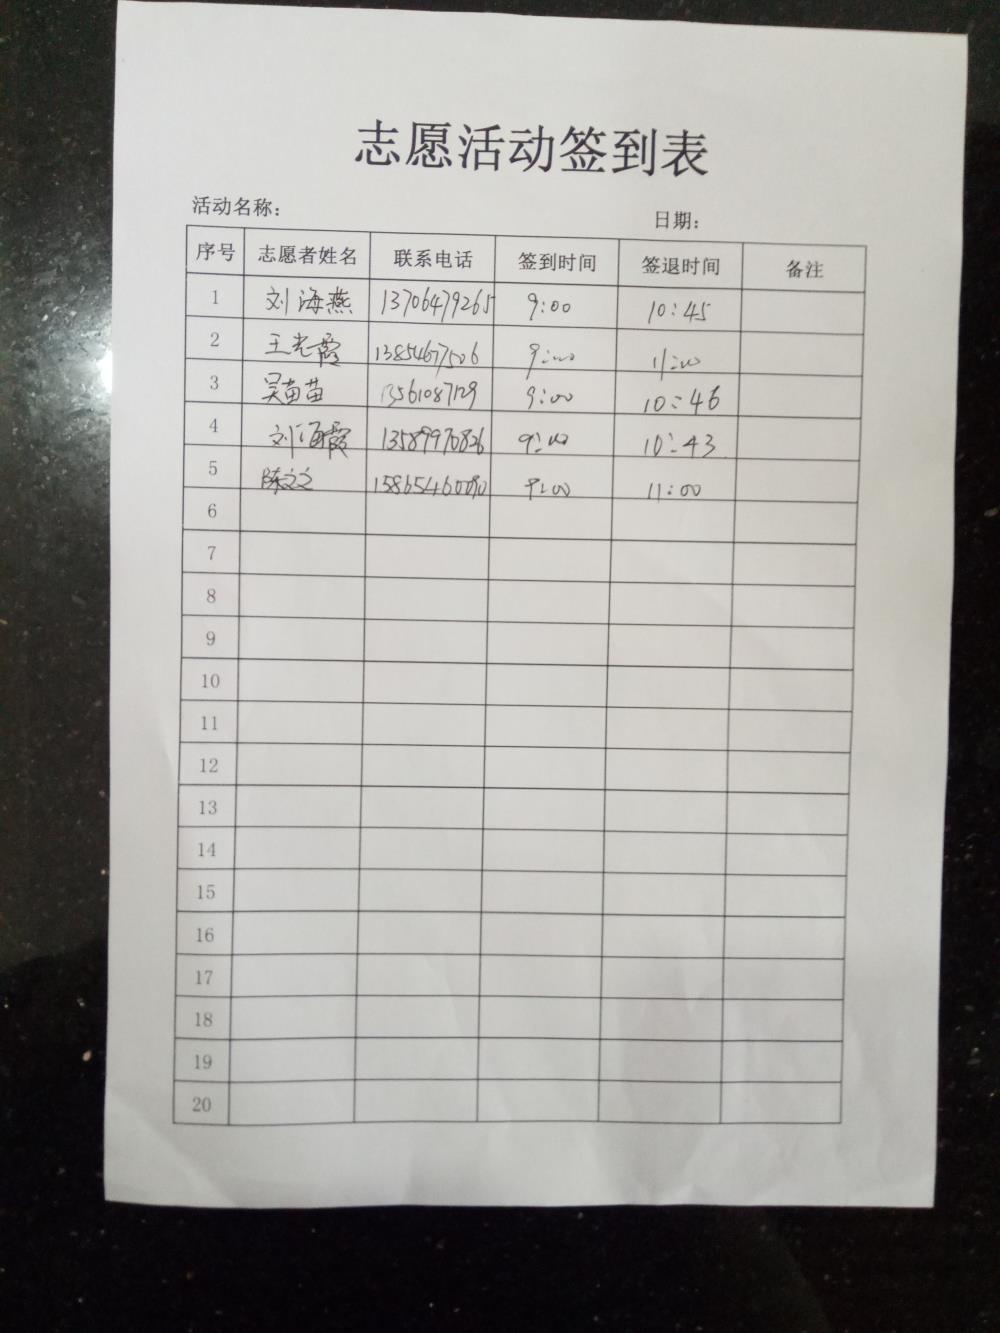 志愿活动签到表
活动名称：
日期：
序号 志愿者姓名 联系电话 签到时间 签退时间 备注
1 刘海燕 13706479265 9:00 10:45
2 王光霞 13854677506 9:00 11:00
3 吴苗苗 13561087129 9:00 10:46
4 刘海霞 13589970826 9:00 10:43
5 陈文文 15865460090 9:00 11:00
6
7
8
9
10
11
12
13
14
15
16
17
18
19
20